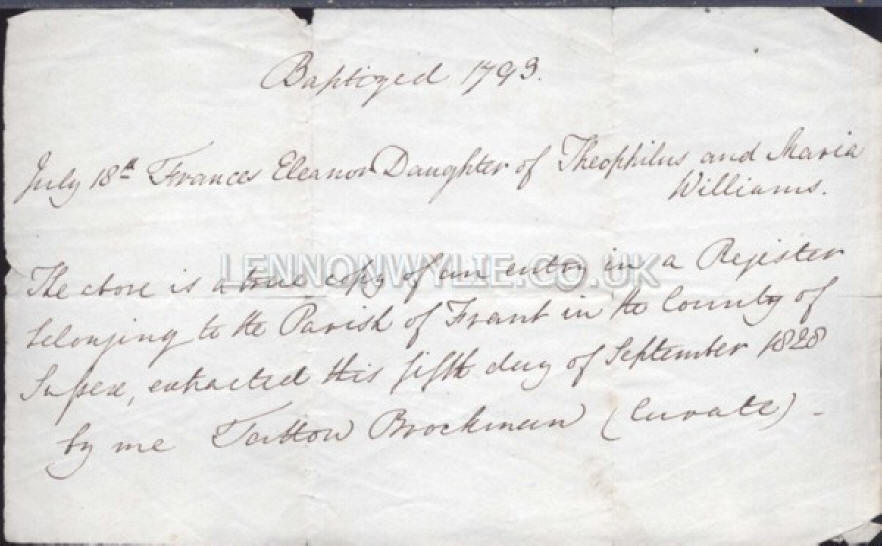 Baptized 1793.
July 18th Frances Eleanor Daughter of Theophilus and Maria
Williams.
LENNONWYLIE.CO.UK
The above is a true copy of an entry in a Register
belonging to the Parish of Frant in the County of
Sussex, extracted this fifth day of September 1828
by me Tatton Brockman (Curate) -